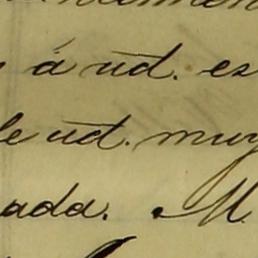 á ud. es
le ud. muy
ada. M